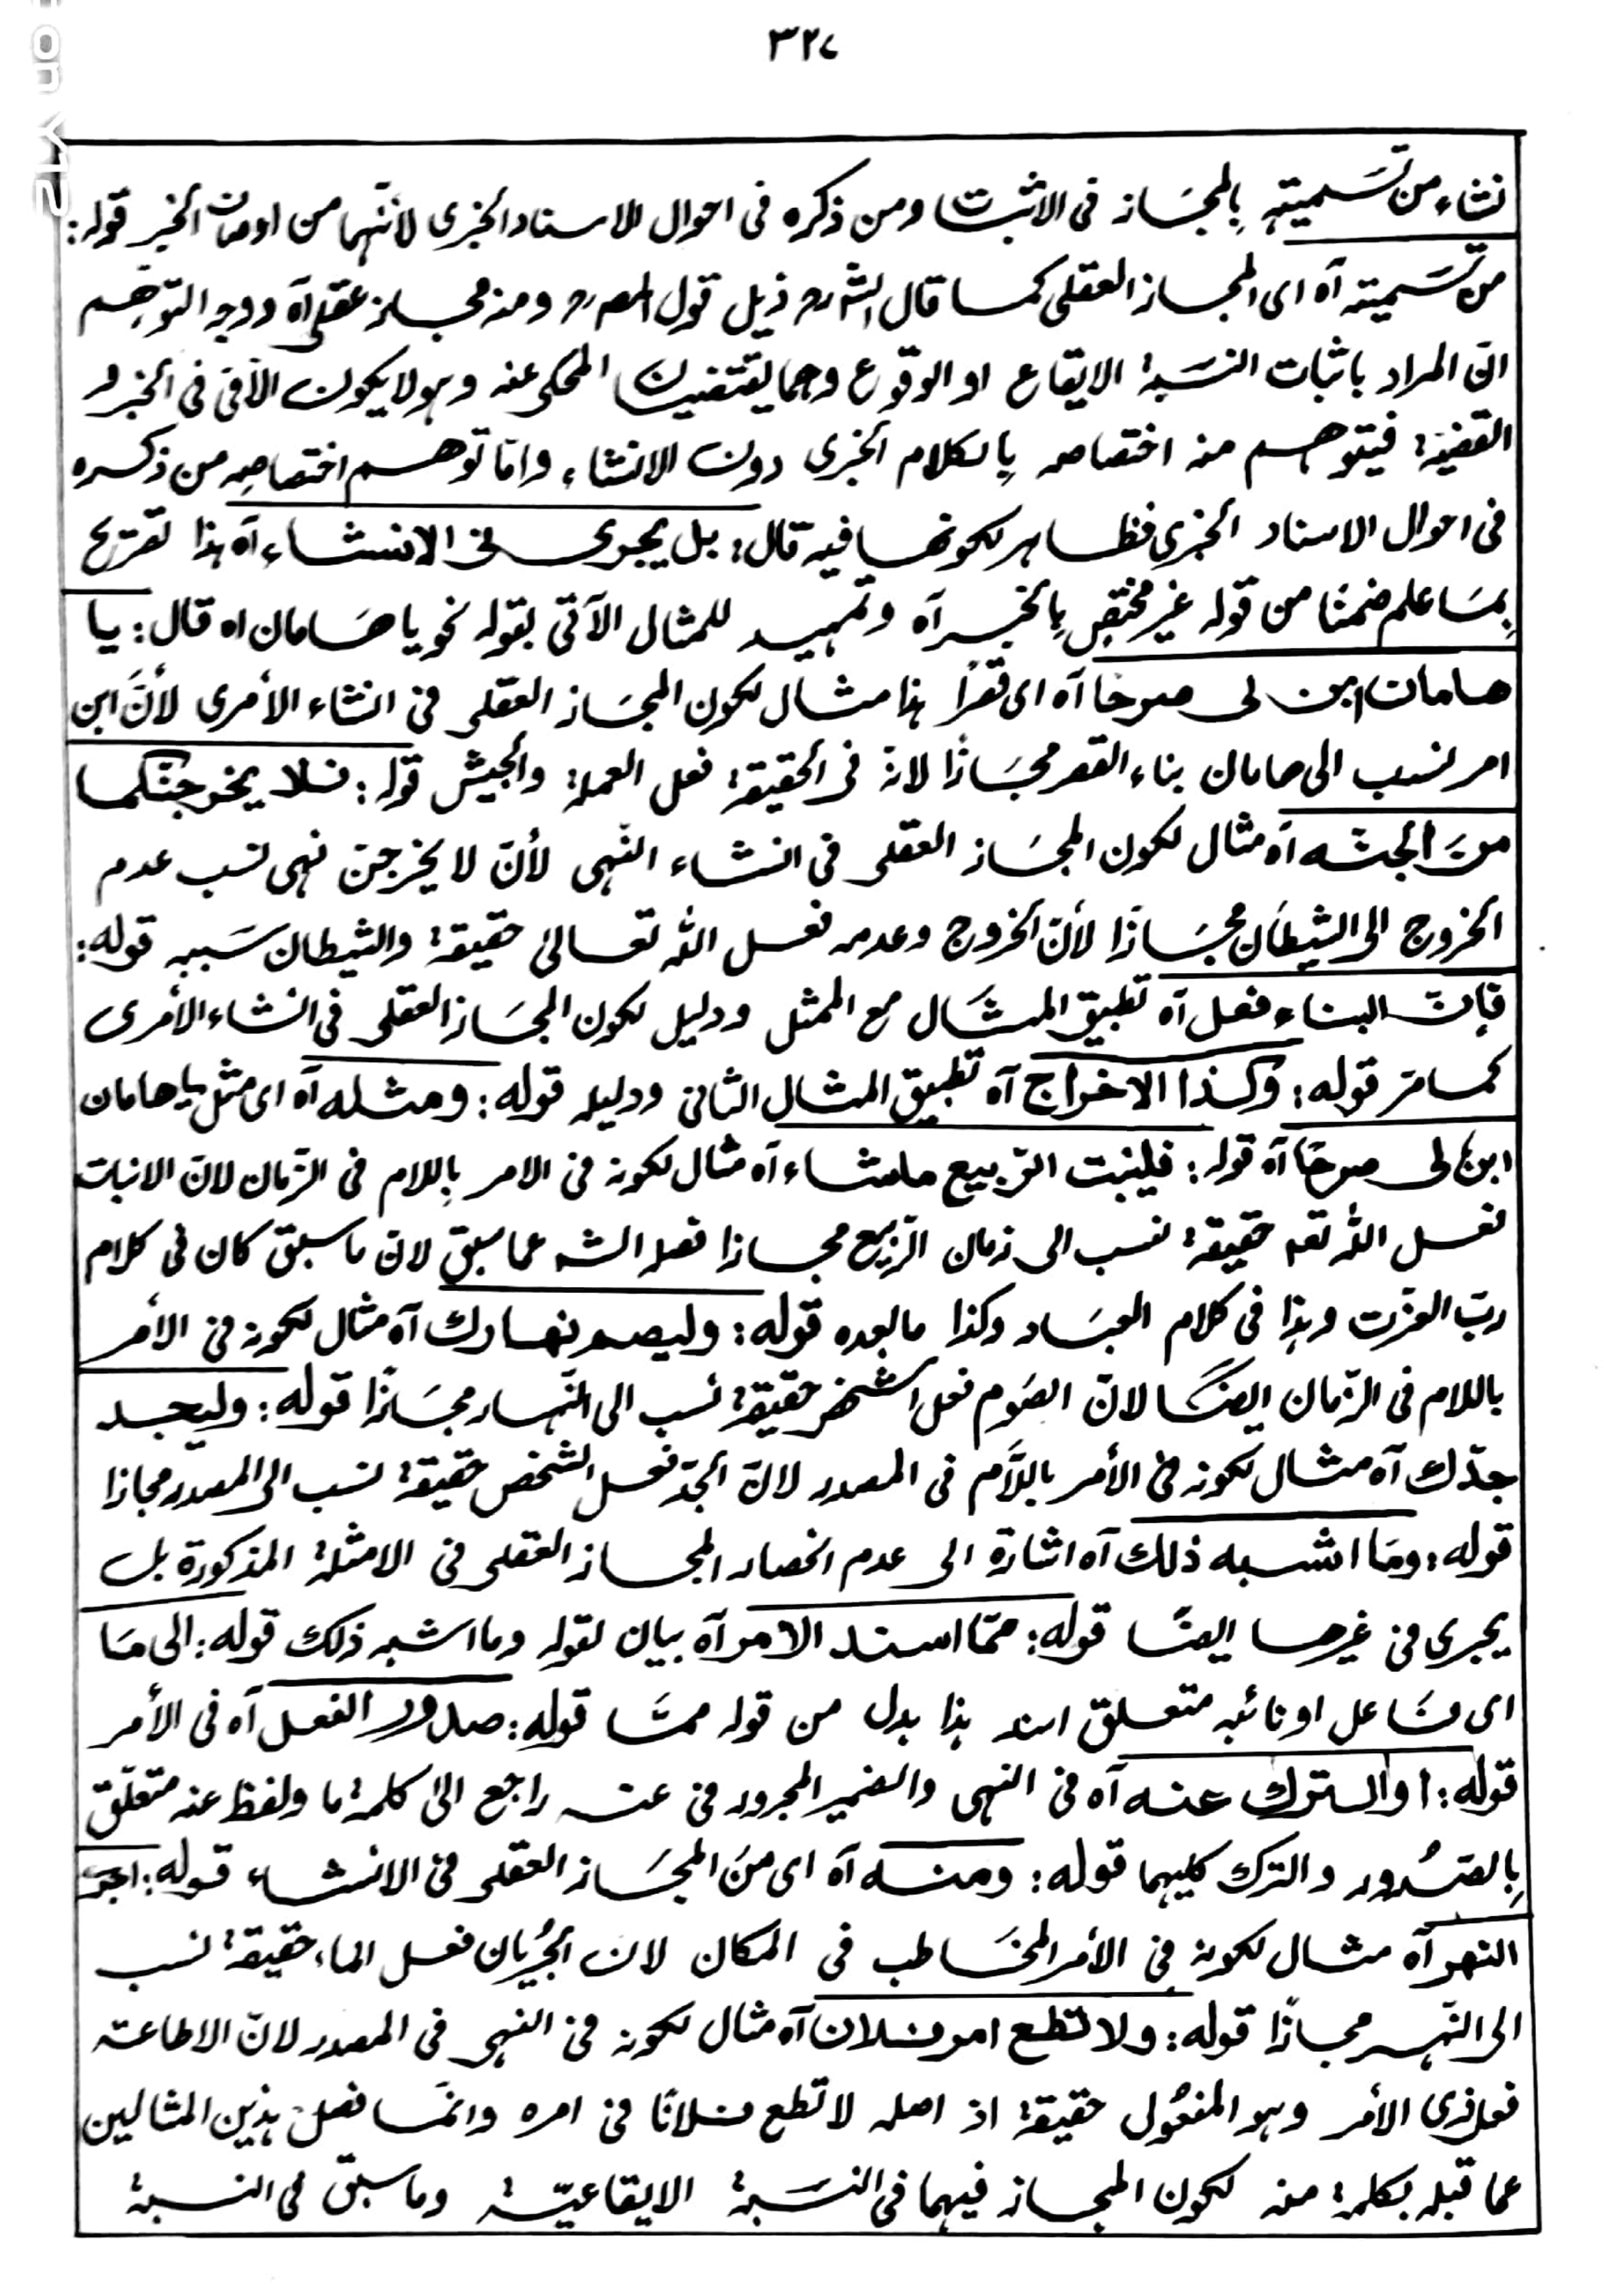 ٣٢٧
نشاء من تسميته بالمجاز فى الاثبات ومن ذكره فى احوال الاسناد الخبرى لأنهما من اوصاف الخبر قوله:
من تسميته آه اى المجاز العقلى كما قال الشارح ذيل قول المصرح ومنه مجاز عقلى آه ووجه التوهم
ان المراد باثبات النسبة الايقاع او الوقوع وهما يقتضيان المحكى عنه وهو لا يكون الا فى الخبر و
القضية فيتوهم منه اختصاصه بالكلام الخبرى دون الانشاء واما توهم اختصاصه من ذكره
فى احوال الاسناد الخبرى فظاهر لكونها فيه قال: بل يجرى فى الانشاء آه هذا تفريع
بما علم ضمنًا من قوله غير مختص بالخبر آه وتمهيد للمثال الآتى بقوله نحو يا هامان اه قال: يا
هامان ابن لى صرحا آه اى قصرًا هذا مثال لكون المجاز العقلى فى انشاء الأمرى لأنَّ ابن
امر نسب الى هامان بناء القصر مجازًا لانه فى الحقيقة فعل العملة والجيش قوله: فلا يخرجنكما
من الجنه آه مثال لكون المجاز العقلى فى انشاء النهى لأنّ لا يخرجن نهى نسب عدم
الخروج الى الشيطان مجازًا لأنّ الخروج وعدمه فعل الله تعالى حقيقة والشيطان سببه قوله:
فان البناء فعل آه تطبيق المثال مع الممثل ودليل لكون المجاز العقلى فى انشاء الأمرى
كما مرّ قوله: وكذا الاخراج آه تطبيق المثال الثانى ودليله قوله: ومثله آه اى مثل يا هامان
ابن لى صرحًا آه قوله: فلينبت الربيع ما شاء آه مثال لكونه فى الامر باللام فى الزمان لانّ الانبات
فعل الله تعه حقيقة نسب الى زمان الربيع مجازا فصله الشه عما سبق لانّ ما سبق كان فى كلام
ربّ العزت وهذا فى كلام العباد وكذا ما بعده قوله: وليصم نهارك آه مثال لكونه فى الأمر
باللام فى الزّمان ايضًا لانّ الصوم فعل الشخص حقيقة نسب الى النّهار مجازًا قوله: وليجد
جدّك آه مثال لكونه فى الأمر باللّام فى المصدر لانّ الجدّ فعل الشخص حقيقة نسب الى المصدر مجازا
قوله: وما اشبه ذلك آه اشارة الى عدم انحصار المجاز العقلى فى الامثلة المذكورة بل
يجرى فى غيرها ايضًا قوله: ممّا اسند الامر آه بيان لقوله وما اشبه ذلك قوله: الى ما
اى فاعل او نائبه متعلق اسند هذا بدل من قوله ممّا قوله: صدور الفعل آه فى الأمر
قوله: او الترك عنه آه فى النهى والضمير المجرور فى عنه راجع الى كلمة ما ولفظ عنه متعلّق
بالصدور والترك كليهما قوله: ومنه آه اى من المجاز العقلى فى الانشاء قوله: اجر
النهر آه مثال لكونه فى الأمر المخاطب فى المكان لان الجُريان فعل الماء حقيقة نسب
الى النّهر مجازًا قوله: ولا تطع امر فلان آه مثال لكونه فى النهى فى المصدر لانّ الاطاعة
فعل ذى الأمر وهو المفعُول حقيقة اذ اصله لا تطع فلانًا فى امره وانما فصل هذين المثالين
عما قبله بكلمة منه لكون المجاز فيهما فى النسبة الايقاعيّة وما سبق فى النسبة